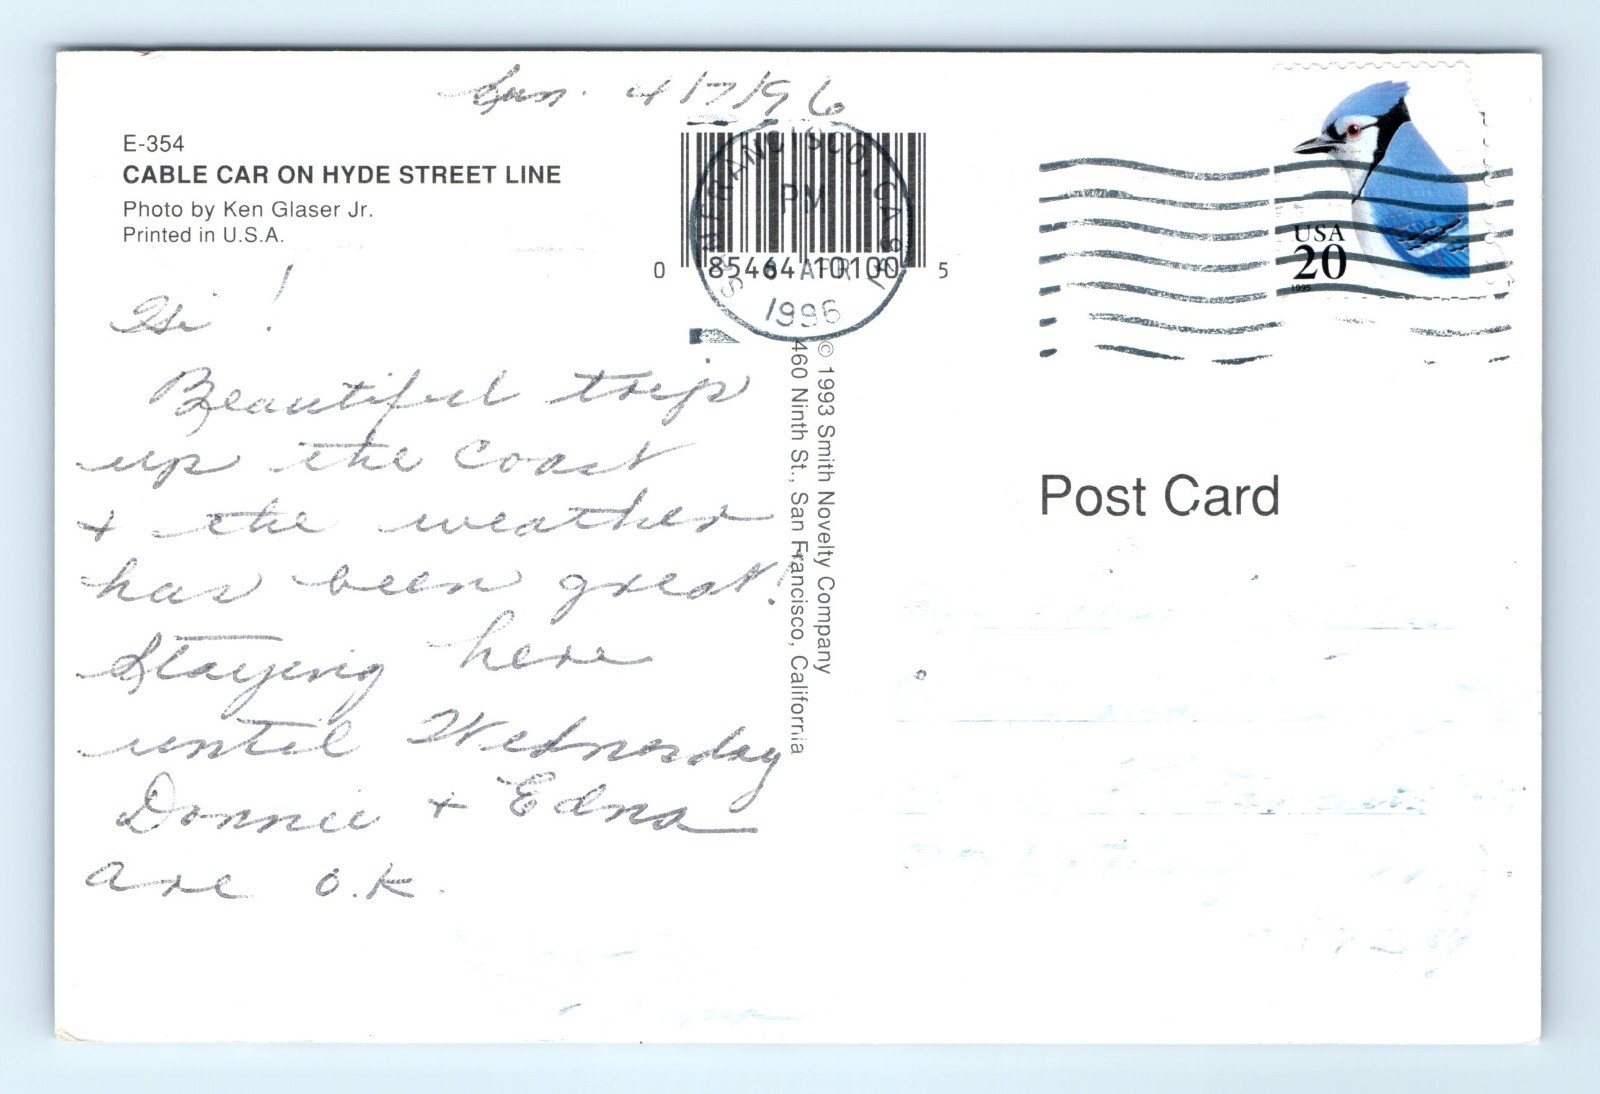 Sun. 4/7/96
E-354
CABLE CAR ON HYDE STREET LINE
Photo by Ken Glaser Jr.
Printed in U.S.A.
Hi!
Beautiful trip
up the coast
+ the weather
has been great!
Staying here
until Wednesday
Donnie + Edna
are O.K.
0 85464 10100 5
SAN FRANCISCO, CA
PM
APR
1996
© 1993 Smith Novelty Company
460 Ninth St., San Francisco, California
USA
20
1995
Post Card